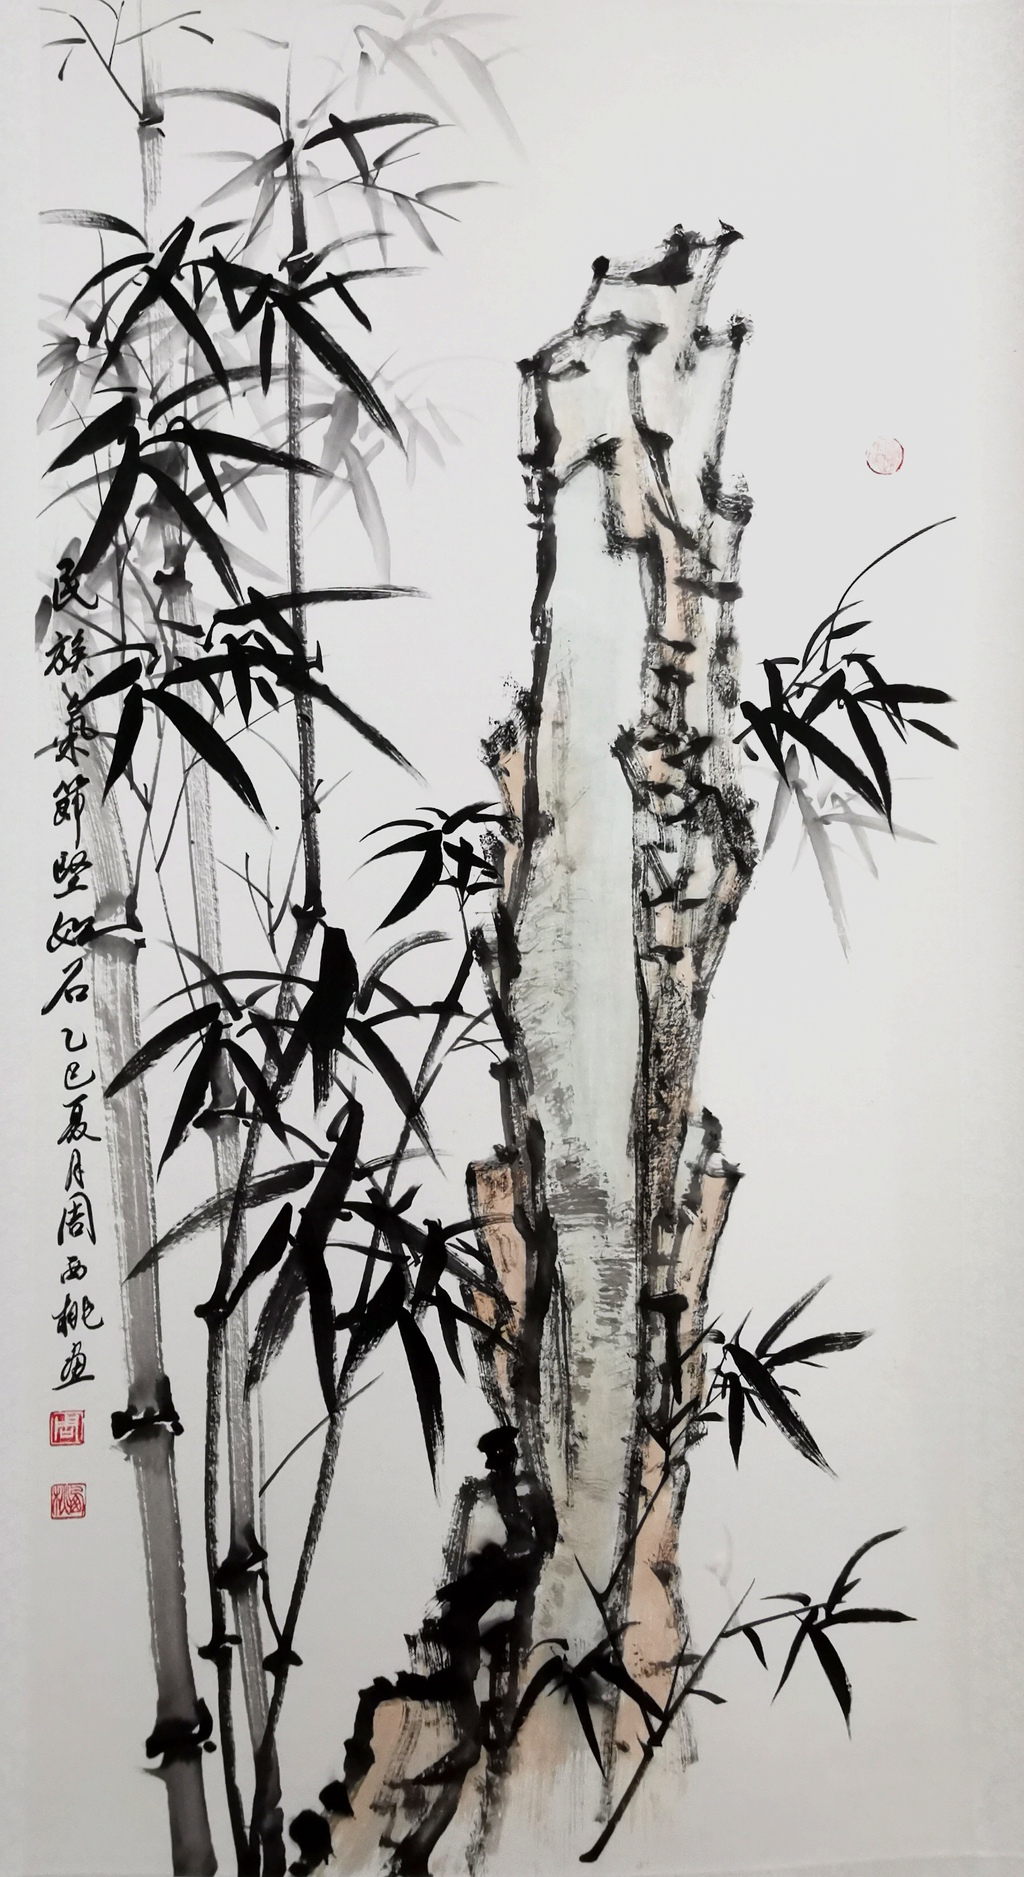 民族氣節堅如石乙巳夏月周西桃畫